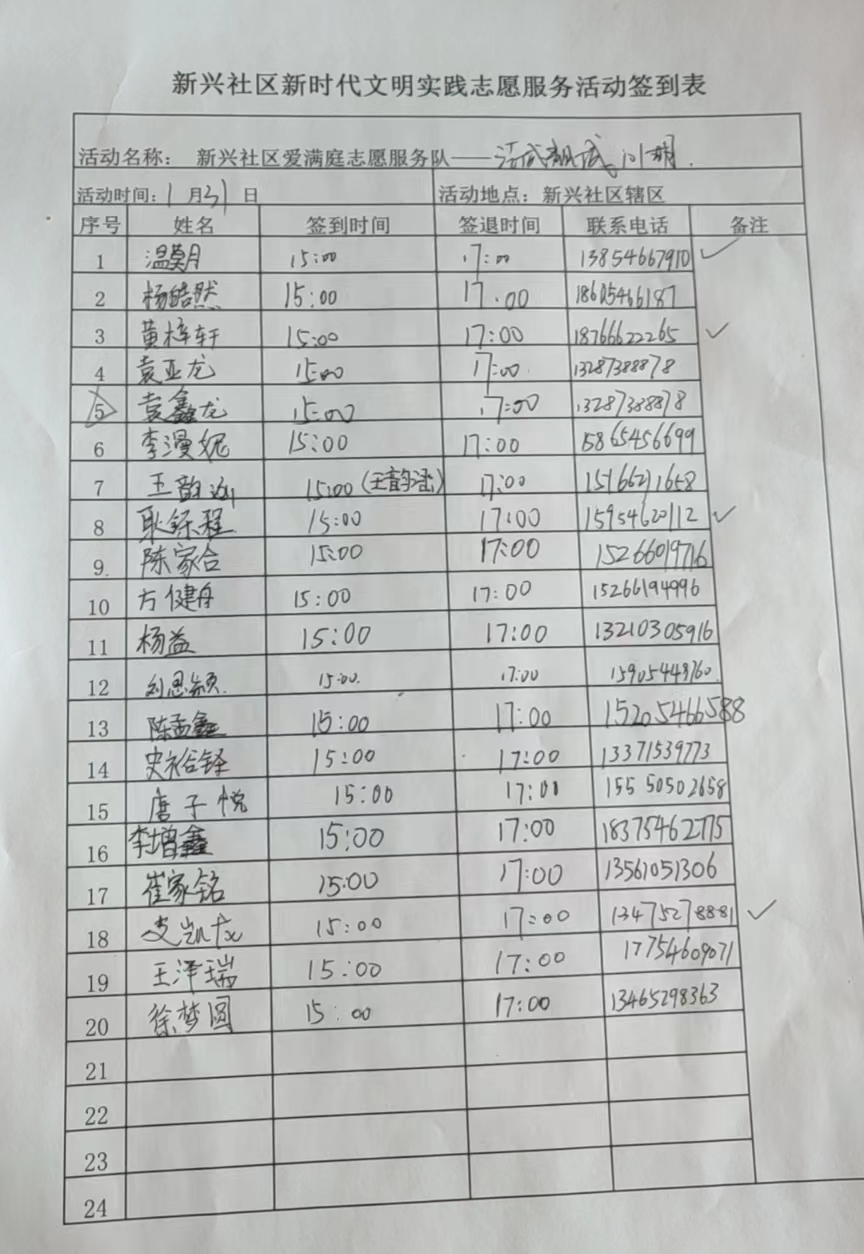 新兴社区新时代文明实践志愿服务活动签到表
活动名称： 新兴社区爱满庭志愿服务队——
活动时间：1 月31 日 活动地点：新兴社区辖区
序号 姓名 签到时间 签退时间 联系电话 备注
1 15:00 17:00 13854667910 ✓
2 杨皓然 15:00 17.00 18605466187
3 黄梓轩 15:00 17:00 18766622265 ✓
4 袁亚龙 15:00 17:00 13287388878
5 袁鑫龙 15:00 17:00 13287388878
6 李漫妮 15:00 17:00 15865456699
7 王韵涵 15:00 (王韵涵) 17:00 15166271658
8 耿铄程 15:00 17:00 15954620112 ✓
9 陈家合 15:00 17:00 15266019716
10 方健舟 15:00 17:00 15266194996
11 杨益 15:00 17:00 13210305916
12 刘思颖 15:00 17:00 15905448760
13 陈孟鑫 15:00 17:00 15205466588
14 史裕铎 15:00 17:00 13371539773
15 唐子悦 15:00 17:00 15550502658
16 李增鑫 15:00 17:00 18375462775
17 崔家铭 15:00 17:00 13561051306
18 15:00 17:00 13475278881 ✓
19 王泽瑞 15:00 17:00 17754609071
20 徐梦圆 15:00 17:00 13465298363
21
22
23
24